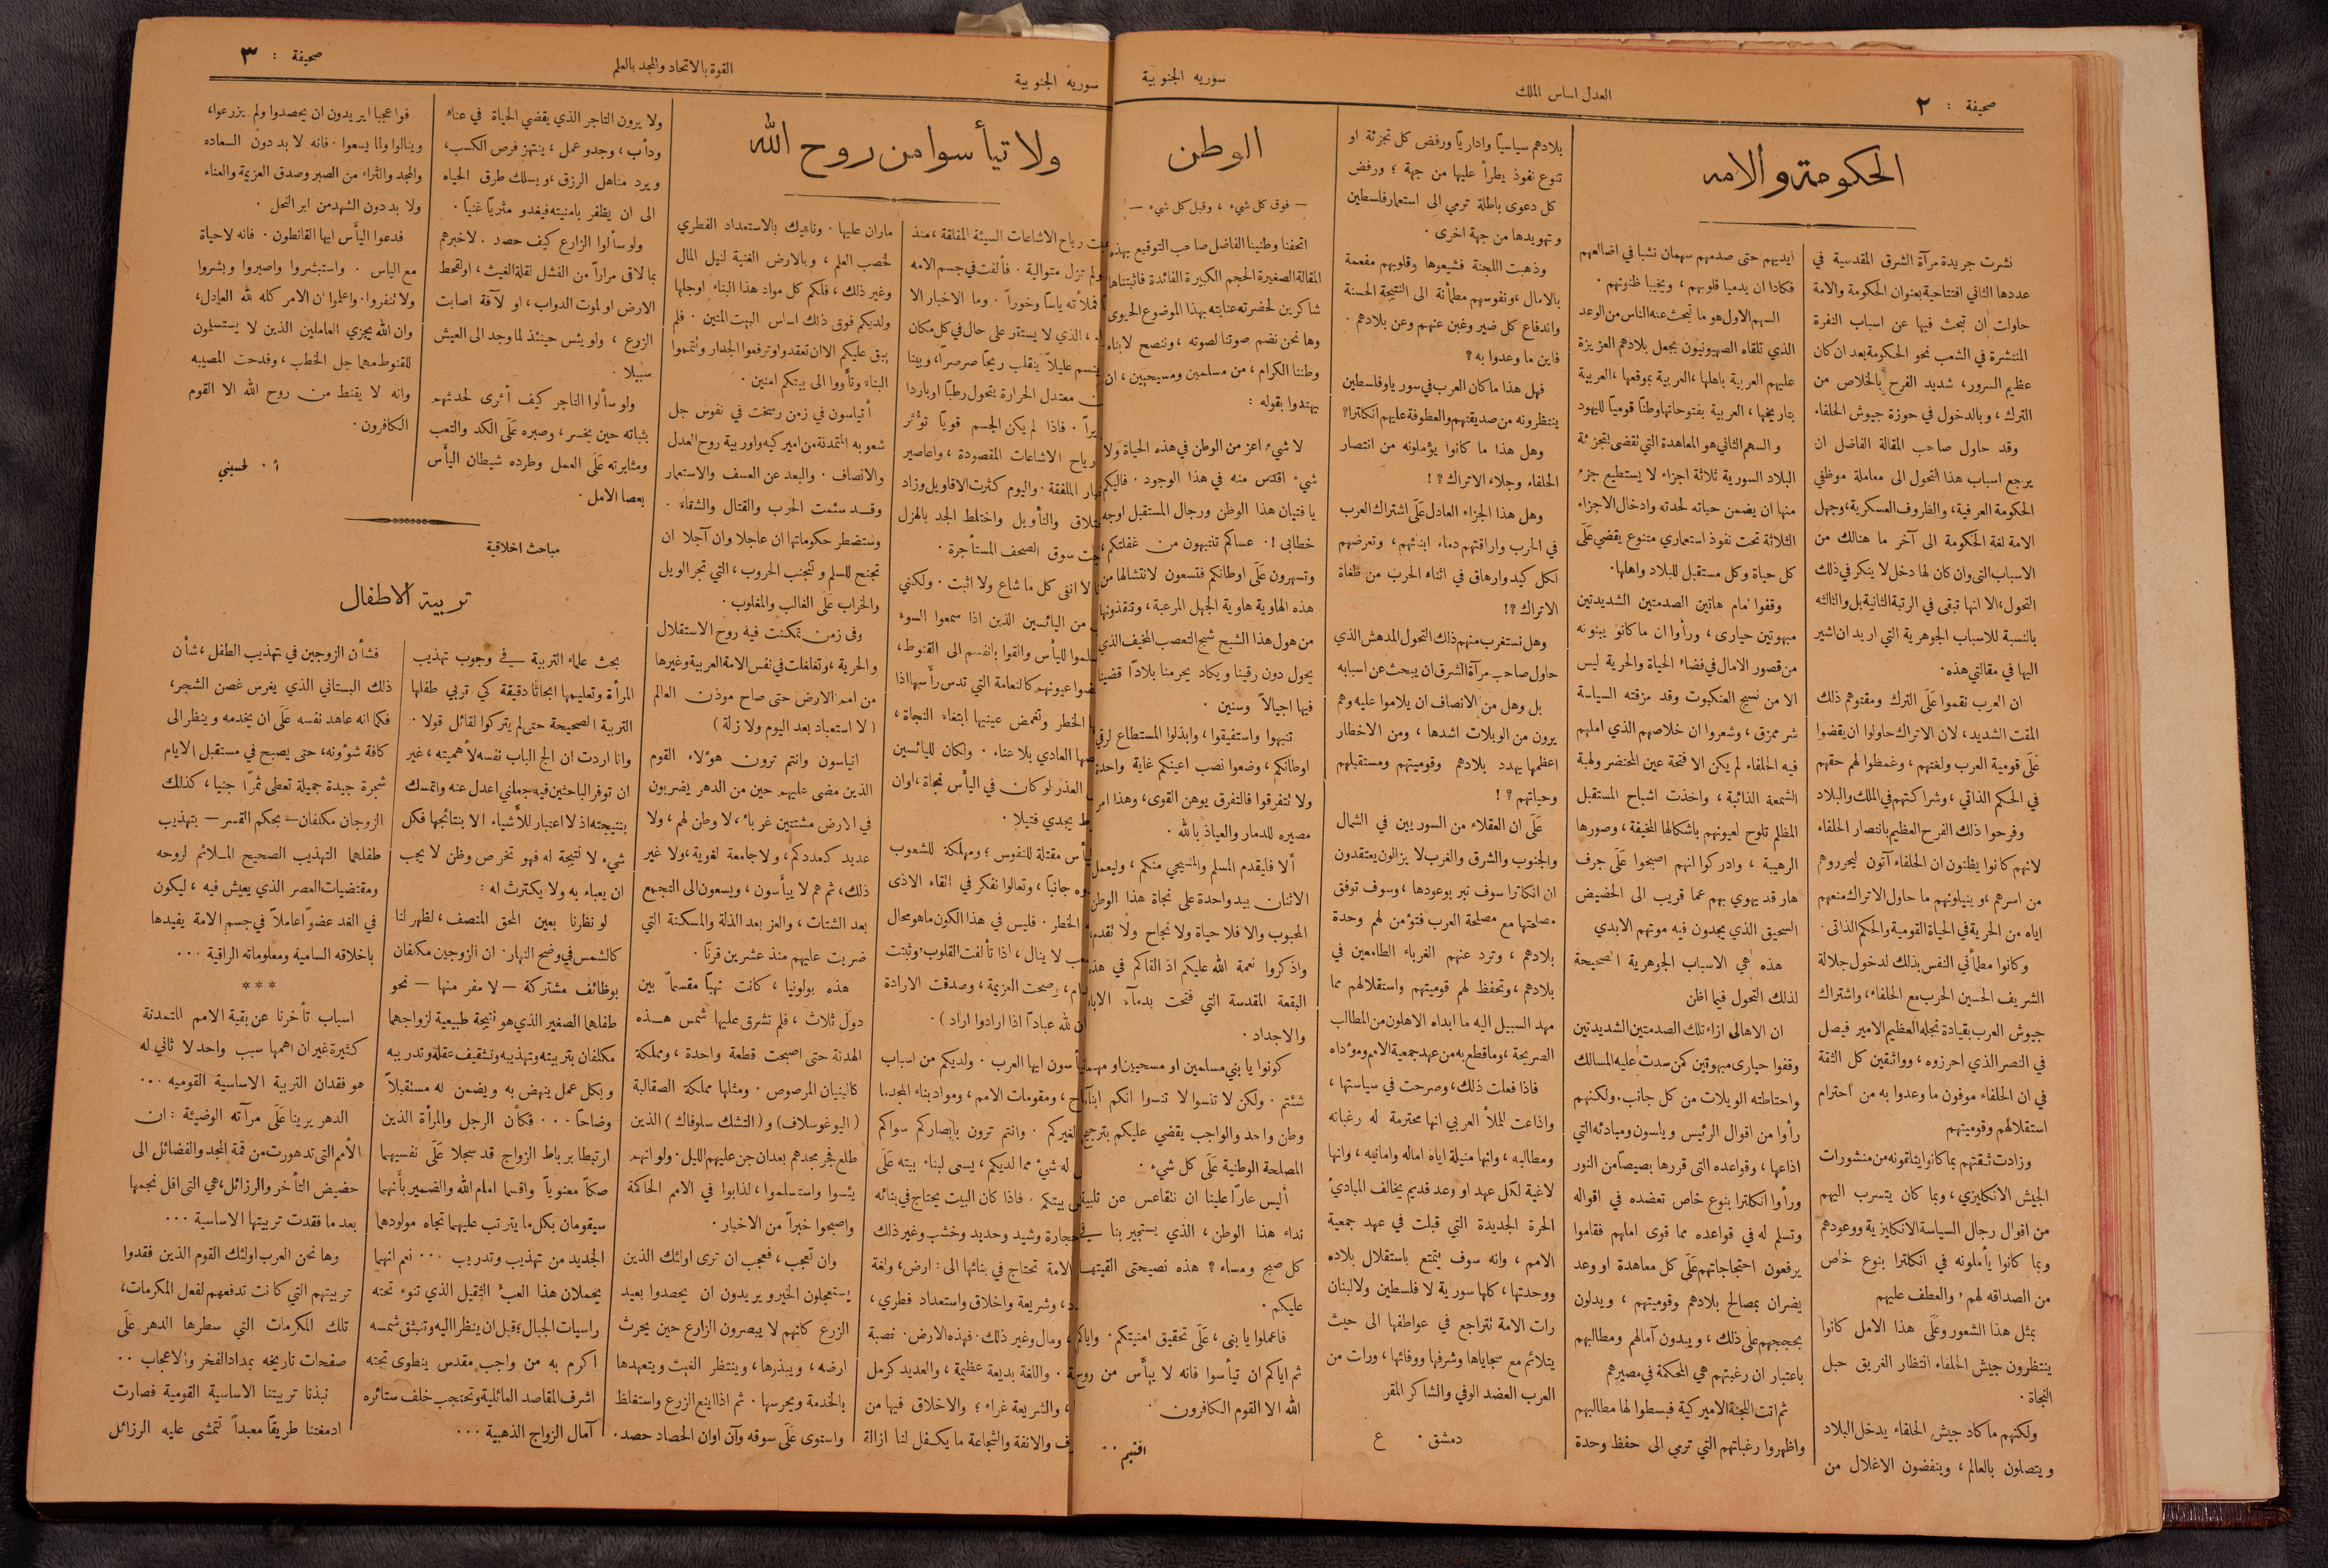 صحيفة : ٢
العدل اساس الملك
سورية الجنوبية
الحكومة والامه
نشرت جريدة مرآة الشرق المقدسية في
عددها الثاني افتتاحية بعنوان الحكومة والامة
حاولت ان تبحث فيها عن اسباب النفرة
المنتشرة في الشعب نحو الحكومة بعد ان كان
عظيم السرور، شديد الفرح بالخلاص من
الترك، وبالدخول في حوزة جيوش الحلفاء
وقد حاول صاحب المقالة الفاضل ان
يرجع اسباب هذا التحول الى معاملة موظفي
الحكومة العرفية، والظروف العسكرية، وجهل
الامة لغة الحكومة الى آخر ما هنالك من
الاسباب التى وان كان لها دخل لا ينكر في ذلك
التحول، الا انها تبقى في الرتبة الثانية بل والثالثه
بالنسبة للاسباب الجوهرية التي اريد ان اشير
اليها في مقالتي هذه.
ان العرب نقموا عَلَى الترك ومقتوهم ذلك
المقت الشديد، لان الاتراك حاولوا ان يقضوا
عَلَى قومية العرب ولغتهم، وغمطوا لهم حقهم
في الحكم الذاتي، وشراكتهم في الملك والبلاد
وفرحوا ذلك الفرح العظيم بانتصار الحلفاء
لانهم كانوا يظنون ان الحلفاء آتون ليحرروهم
من اسرهم، وينيلونهم ما حاول الاتراك منعهم
اياه من الحرية في الحياة القومية والحكم الذاتى.
وكانوا مطمأني النفس بذلك لدخول جلالة
الشريف الحسين الحرب مع الحلفاء، واشتراك
جيوش العرب بقيادة نجله العظيم الامير فيصل
في النصر الذي احرزوه، وواثقين كل الثقة
في ان الحلفاء موفون ما وعدوا به من احترام
استقلالهم وقوميتهم
وزادت ثقتهم بما كانوا يتلقونه من منشورات
الجيش الانكليزي، وبما كان يتسرب اليهم
من اقوال رجال السياسة الانكليزية ووعودهم
وبما كانوا يأملونه في انكلترا بنوع خاص
من الصداقه لهم، والعطف عليهم
بمثل هذا الشعور وعَلَى هذا الامل كانوا
ينتظرون جيش الحلفاء انتظار الغريق حبل
النجاة.
ولكنهم ما كاد جيش الحلفاء يدخل البلاد
ويتصلون بالعالم، وينفضون الاغلال من
ايديهم حتى صدمهم سهمان نشبا في اضالعهم
فكادا ان يدميا قلوبهم، ويخيبا ظنونهم.
السهم الاول هو ما تبحث عنه الناس من الوعد
الذي تلقاه الصهيونيون بجعل بلادهم العزيزة
عليهم العربية باهلها، العربية بموقعها، العربية
بتاريخها، العربية بفتوحاتها وطنًا قوميًا لليهود
والسهم الثاني هو المعاهدة التي تقضى بتجزئة
البلاد السورية ثلاثة اجزاء لا يستطيع جزء
منها ان يضمن حياته لحدته وادخال الاجزاء
الثلاثة تحت نفوذ استعماري متنوع يقضي عَلَى
كل حياة وكل مستقبل للبلاد واهلها.
وقفوا امام هاتين الصدمتين الشديدتين
مبهوتين حيارى، ورأوا ان ما كانو يبنونه
من قصور الامال في فضاء الحياة والحرية ليس
الا من نسيج العنكبوت وقد مزقته السياسة
شر ممزق، وشعروا ان خلاصهم الذي املهم
فيه الحلفاء لم يكن الا فتحة عين المحتضر ولهبة
الشمعة الذائبة، واخذت اشباح المستقبل
المظلم تلوح لعيونهم باشكالها المخيفة، وصورها
الرهيبة، وادركوا انهم اصبحوا عَلَى جرف
هار قد يهوي بهم عما قريب الى الحضيض
السحيق الذي يجدون فيه موتهم الابدي
هذه هي الاسباب الجوهرية الصحيحة
لذلك التحول فيما اظن
ان الاهالى ازاء تلك الصدمتين الشديدتين
وقفوا حيارى مبهوتين كمن سدت عليه المسالك
واحتاطته الويلات من كل جانب، ولكنهم
رأوا من اقوال الرئيس ويلسون ومبادئه التي
اذاعها، وقواعده التى قررها بصيصًا من النور
ورأوا انكلترا بنوع خاص تعضده في اقواله
وتسلم له في قواعده مما قوى املهم فقاموا
يرفعون احتجاجاتهم عَلَى كل معاهدة او وعد
يضران بمصالح بلادهم وقوميتهم، ويدلون
بحججهم على ذلك، ويبدون آمالهم ومطالبهم
باعتبار ان رغبتهم هي المحكمة في مصيرهم
ثم اتت اللجنة الاميركية فبسطوا لها مطالبهم
واظهروا رغباتهم التي ترمي الى حفظ وحدة
بلادهم سياسيًا واداريًا ورفض كل تجزئة او
تنوع نفوذ يطرأ عليها من جهة؛ ورفض
كل دعوى باطلة ترمي الى استعمار فلسطين
وتهويدها من جهة اخرى.
وذهبت اللجنة فشيعوها وقلوبهم مفعمة
بالامال، ونفوسهم مطمأنة الى النتيجة الحسنة
واندفاع كل ضير وغبن عنهم وعن بلادهم.
فاين ما وعدوا به؟
فهل هذا ما كان العرب في سوريا وفلسطين
ينتظرونه من صديقتهم والعطوفة عليهم انكلترا؟
وهل هذا ما كانوا يؤملونه من انتصار
الحلفاء وجلاء الاتراك؟!
وهل هذا الجزاء العادل عَلَى اشتراك العرب
في الحرب واراقتهم دماء ابنائهم، وتعرضهم
لكل كيد وارهاق في اثناء الحرب من طغاة
الاتراك؟!
وهل نستغرب منهم ذلك التحول المدهش الذي
حاول صاحب مرآة الشرق ان يبحث عن اسبابه
بل وهل من الانصاف ان يلاموا عليه وهم
يرون من الويلات اشدها، ومن الاخطار
اعظمها يهدد بلادهم وقوميتهم ومستقبلهم
وحياتهم؟!
عَلَى ان العقلاء من السوريين في الشمال
والجنوب والشرق والغرب لا يزالون يعتقدون
ان انكلترا سوف تبر بوعودها، وسوف توفق
مصلحتها مع مصلحة العرب فتؤمن لهم وحدة
بلادهم، وترد عنهم الغرباء الطامعين في
بلادهم، وتحفظ لهم قوميتهم واستقلالهم مما
مهد السبيل اليه ما ابداه الاهلون من المطالب
الصريحة، وما قطع به من عهد جمعية الامم ومؤداه
فاذا فعلت ذلك، وصرحت في سياستها،
واذاعت للملأ العربي انها محترمة له رغباته
ومطالبه، وانها منيلة اياه اماله وامانيه، وانها
لاغية لكل عهد او وعد قديم يخالف المبادئ
الحرة الجديدة التي قبلت في عهد جمعية
الامم، وانه سوف يتمتع باستقلال بلاده
ووحدتها، كلها سورية لا فلسطين ولا لبنان
رات الامة تتراجع في عواطفها الى حيث
يتلائم مع سجاياها وشرفها ووفائها، ورات من
العرب العضد الوفي والشاكر المقر
دمشق. ع
الوطن
— فوق كل شيء، وقبل كل شيء —
اتحفنا وطنينا الفاضل صاحب التوقيع بهذه
المقالة الصغيرة الحجم الكبيرة الفائدة فاثبتناها
شاكرين لحضرته عنايته بهذا الموضوع الحيوي
وها نحن نضم صوتنا لصوته، وننصح لابناء
وطننا الكرام، من مسلمين ومسيحيين، ان
يهتدوا بقوله:
لا شيء اعز من الوطن في هذه الحياة ولا
شيء اقدس منه في هذا الوجود. فاليكم
يا فتيان هذا الوطن ورجال المستقبل اوجه
خطابى!. عساكم تنتبهون من غفلتكم،
وتسهرون عَلَى اوطانكم فتسعون لانتشالها من
هذه الهاوية هاوية الجهل المرعبة، وتنقذونها
من هول هذا الشبح شبح التعصب المخيف الذي
يحول دون رقينا ويكاد يحرمنا بلادًا قضينا
فيها اجيالاً وسنين.
تنبهوا واستفيقوا، وابذلوا المستطاع لرقي
اوطانكم، وضعوا نصب اعينكم غاية واحدة
ولا تتفرقوا فالتفرق يوهن القوى، وهذا امر
مصيره للدمار والعياذ بالله.
ألا فليقدم المسلم والمسيحي منكم، وليعمل
الاثنان بيد واحدة على نجاة هذا الوطن
المحبوب والا فلا حياة ولا نجاح ولا تقدم،
واذكروا نعمة الله عليكم اذ القاكم في هذه
البقعة المقدسة التي فتحت بدمآء الاباء
والاجداد.
كونوا يا بني مسلمين او مسحيين او مهما
شئتم. ولكن لا تنسوا لا تنسوا انكم ابناء
وطن واحد والواجب يقضي عليكم بترجيح
المصلحة الوطنية عَلَى كل شيء.
أليس عارًا علينا ان نتقاعس عن تلبية
نداء هذا الوطن، الذي يستجير بنا في
كل صبح ومساء؟ هذه نصيحتى القيتها
عليكم.
فاعملوا يا بنى، عَلَى تحقيق امنيتكم. واياكم،
ثم اياكم ان تيأسوا فانه لا ييأس من روح
الله الا القوم الكافرون.
سورية الجنوبية
القوة بالاتحاد والمجد بالعلم
صحيفة : ٣
ولا تيأسوا من روح الله
رياح الاشاعات السيئة المقلقة، منذ
ولم تزل متوالية. فألفت في جسم الامه
فملأته ياسًا وخوراً. وما الاخبار الا
، الذي لا يستقر على حال في كل مكان
عليلاً ينقلب ريحًا صرصراً، وبينا
معتدل الحرارة يتحول رطبًا او باردا
. فاذا لم يكن الجسم قويًا تؤثر
رياح الاشاعات المقصودة، واعاصير
الملفقة. واليوم كثرت الاقاويل وزاد
والتأويل واختلط الجد بالهزل
سوق الصحف المستأجرة.
لا انفى كل ما شاع ولا اثبت. ولكنني
من اليائسين الذين اذا سمعوا السوء
لليأس والقوا بانفسهم الى القنوط،
عيونهم كالنعامة التي تدس رأسها اذا
الخطر وتغمض عينيها ابتغاء النجاة،
العادي بلا عناء. ولكان لليائسين
العذر لو كان في اليأس نجاة، اوان
يجدي فتيلا.
مقتلة للنفوس؛ ومهلكة للشعوب
جانبًا، وتعالوا نفكر في اتقاء الاذى
الخطر. فليس في هذا الكون ما هو محال
لا ينال، اذا تألفت القلوب، وثبتت
، وصحت العزيمة، وصدقت الارادة
ان لله عباداً اذا ارادوا اراد).
ايها العرب. ولديكم من اسباب
، ومقومات الامم، ومواد بناء المجد ما
لغيركم. وانتم ترون بابصاركم سواكم
له شئ مما لديكم، يسعى لبناء بيته عَلَى
بيتكم. فاذا كان البيت يحتاج في بنائه
حجارة وشيد وحديد وخشب وغير ذلك
الامة تحتاج في بنائها الى: ارض، ولغة
، وشريعة واخلاق واستعداد فطري،
، ومال وغير ذلك. فهذه الارض. خصبة
. واللغة بديعة عظيمة، والعديد كرمل
، والشريعة غراء؛ والاخلاق فيها من
والانفة والشجاعة ما يكفل لنا ازالة
ماران عليها. وناهيك بالاستعداد الفطري
لخصب العلم، وبالارض الغنية لنيل المال
وغير ذلك، فلكم كل مواد هذا البناء اوجلها
ولديكم فوق ذلك اساس البيت المتين. فلم
يبق عليكم الا ان تعقدوا وترفعوا الجدار وتتمموا
البناء وتأووا الى بيتكم امنين.
أتياسون في زمن رسخت في نفوس جل
شعوبه المتمدنة من اميركيه واوربية روح العدل
والانصاف. والبعد عن العسف والاستعمار
وقد سئمت الحرب والقتال والشقاء.
وستضطر حكوماتها ان عاجلا وان آجلا ان
تجنح للسلم وتتجنب الحروب، التي تجر الويل
والخراب عَلَى الغالب والمغلوب.
وفى زمن تمكنت فيه روح الاستقلال
والحرية، وتغلغلت في نفس الامة العربية وغيرها
من امم الارض حتى صاح موذن العالم
(لا استعباد بعد اليوم ولا زلة)
اتياسون وانتم ترون هؤلاء القوم
الذين مضى عليهم حين من الدهر يضربون
في الارض مشتتين غرباء، لا وطن لهم، ولا
عديد كعددكم، ولا جامعة لغوية، ولا غير
ذلك، ثم هم لا ييأسون، ويسعون الى التجمع
بعد الشتات، والعز بعد الذلة والمسكنة التي
ضربت عليهم منذ عشرين قرنًا.
هذه بولونيا، كانت نهبًا مقسمًا بين
دول ثلاث، فلم تشرق عليها شمس هذه
الهدنة حتى اصبحت قطعة واحدة، ومملكة
كالبنيان المرصوص. ومثلها مملكة الصقالبة
(اليوغوسلاف) و (التشك سلوفاك) الذين
طلع فجر مجدهم بعد ان جن عليهم الليل. ولو انهم
يئسوا واستسلموا، لذابوا في الامم الحاكمة
واصبحوا خبراً من الاخبار.
وان تعجب، فعجب ان ترى اولئك الذين
يستعجلون الخير ويريدون ان يحصدوا بعيد
الزرع كانهم لا يبصرون الزارع حين يحرث
ارضه، ويبذرها، وينتظر الغيث ويتعهدها
بالخدمة ويحرسها. ثم اذا اينع الزرع واستغلظ
واستوى عَلَى سوقه وآن اوان الحصاد حصد.
ولا يرون التاجر الذي يقضي الحياة في عناء
ودأب، وجد وعمل، ينتهز فرص الكسب،
ويرد مناهل الرزق، ويسلك طرق الحياه
الى ان يظفر بامنيته فيغدو مثريًا غنيًا.
ولو سألوا الزارع كيف حصد. لاخبرهم
بما لاقى مراراً من الفشل لقلة الغيث، او لقحط
الارض او لموت الدواب، او لآفة اصابت
الزرع، ولو يئس حينئذ لما وجد الى العيش
سبيلا.
ولو سألوا التاجر كيف أثرى لحدثهم
بثباته حين يخسر، وصبره عَلَى الكد والتعب
ومثابرته عَلَى العمل وطرده شيطان اليأس
بعصا الامل.
فواعجبا ايريدون ان يحصدوا ولم يزرعوا،
وينالوا ولما يسعوا. فانه لا بد دون السعاده
والمجد والثراء من الصبر وصدق العزيمة والعناء
ولا بد دون الشهد من ابر النحل.
فدعوا اليأس ايها القانطون. فانه لا حياة
مع الياس. واستبشروا واصبروا وبشروا
ولا تنفروا. واعلموا ان الامر كله لله العادل،
وان الله يجزي العاملين الذين لا يستسلمون
للقنوط مهما جل الخطب، وفدحت المصيبه
وانه لا يقنط من روح الله الا القوم
الكافرون.
أ. لحسيني
مباحث اخلاقية
تربية الاطفال
بحث علماء التربية في وجوب تهذيب
المرأة وتعليمها ابحاثًا دقيقة كي تربي طفلها
التربية الصحيحة حتى لم يتركوا لقائل قولا.
وانا اردت ان الج الباب نفسه لأهميته، غير
ان توفر الباحثين فيه جعلني اعدل عنه واتمسك
بنتيجته اذ لا اعتبار للأشياء الا بنتائجها فكل
شيء لا نتيجة له فهو تخرص وظن لا يجب
ان يعباء به ولا يكترث له:
لو نظرنا بعين المحق المنصف، لظهر لنا
كالشمس في وضح النهار. ان الزوجين مكلفان
بوظائف مشتركة — لا مفر منها — نحو
طفلهما الصغير الذي هو نتيجة طبيعية لزواجهما
مكلفان بتربيته وتهذيبه وتثقيف عقله وتدريبه
وبكل عمل ينهض به ويضمن له مستقبلاً
وضاحًا... فكأن الرجل والمرأة الذين
ارتبطا برباط الزواج قد سجلا عَلَى نفسيهما
صكًا معنويًا واقسما امام الله والضمير بأنهما
سيقومان بكل ما يترتب عليهما تجاه مولودهما
الجديد من تهذيب وتدريب... نعم انهما
يحملان هذا العبْ الثقيل الذي تنوء تحته
راسيات الجبال؛ قبل ان ينظرا اليه وتنبثق شمسه
اكرم به من واجب مقدس ينطوى تحته
اشرف المقاصد العائلية وتحتجب خلف ستائره
آمال الزواج الذهبية...
فشأن الزوجين في تهذيب الطفل، شأن
ذلك البستاني الذي يغرس غصن الشجر،
فكما انه عاهد نفسه عَلَى ان يخدمه وينظر الى
كافة شؤونه، حتى يصبح في مستقبل الايام
شجرة جيدة جميلة تعطى ثمرًا جنيا، كذلك
الزوجان مكلفان — بحكم القسر — بتهذيب
طفلهما التهذيب الصحيح الملائم لروحه
ومقتضيات العصر الذي يعيش فيه، ليكون
في الغد عضوًا عاملاً في جسم الامة يفيدها
باخلاقه السامية ومعلوماته الراقية...
***
اسباب تأخرنا عن بقية الامم المتمدنة
كثيرة غير ان اهمها سبب واحد لا ثاني له
هو فقدان التربية الاساسية القوميه...
الدهر يرينا عَلَى مرآته الوضيئة: ان
الأمم التى تدهورت من قمة المجد والفضائل الى
حضيض التأخر والرزائل، هي التى افل نجمها
بعد ما فقدت تربيتها الاساسية...
وها نحن العرب اولئك القوم الذين فقدوا
تربيتهم التي كانت تدفعهم لفعل المكرمات،
تلك المكرمات التي سطرها الدهر عَلَى
صفحات تاريخه بمداد الفخر والاعجاب..
نبذنا تربيتنا الاساسية القومية فصارت
ادمغتنا طريقًا معبداً تتمشى عليه الرزائل